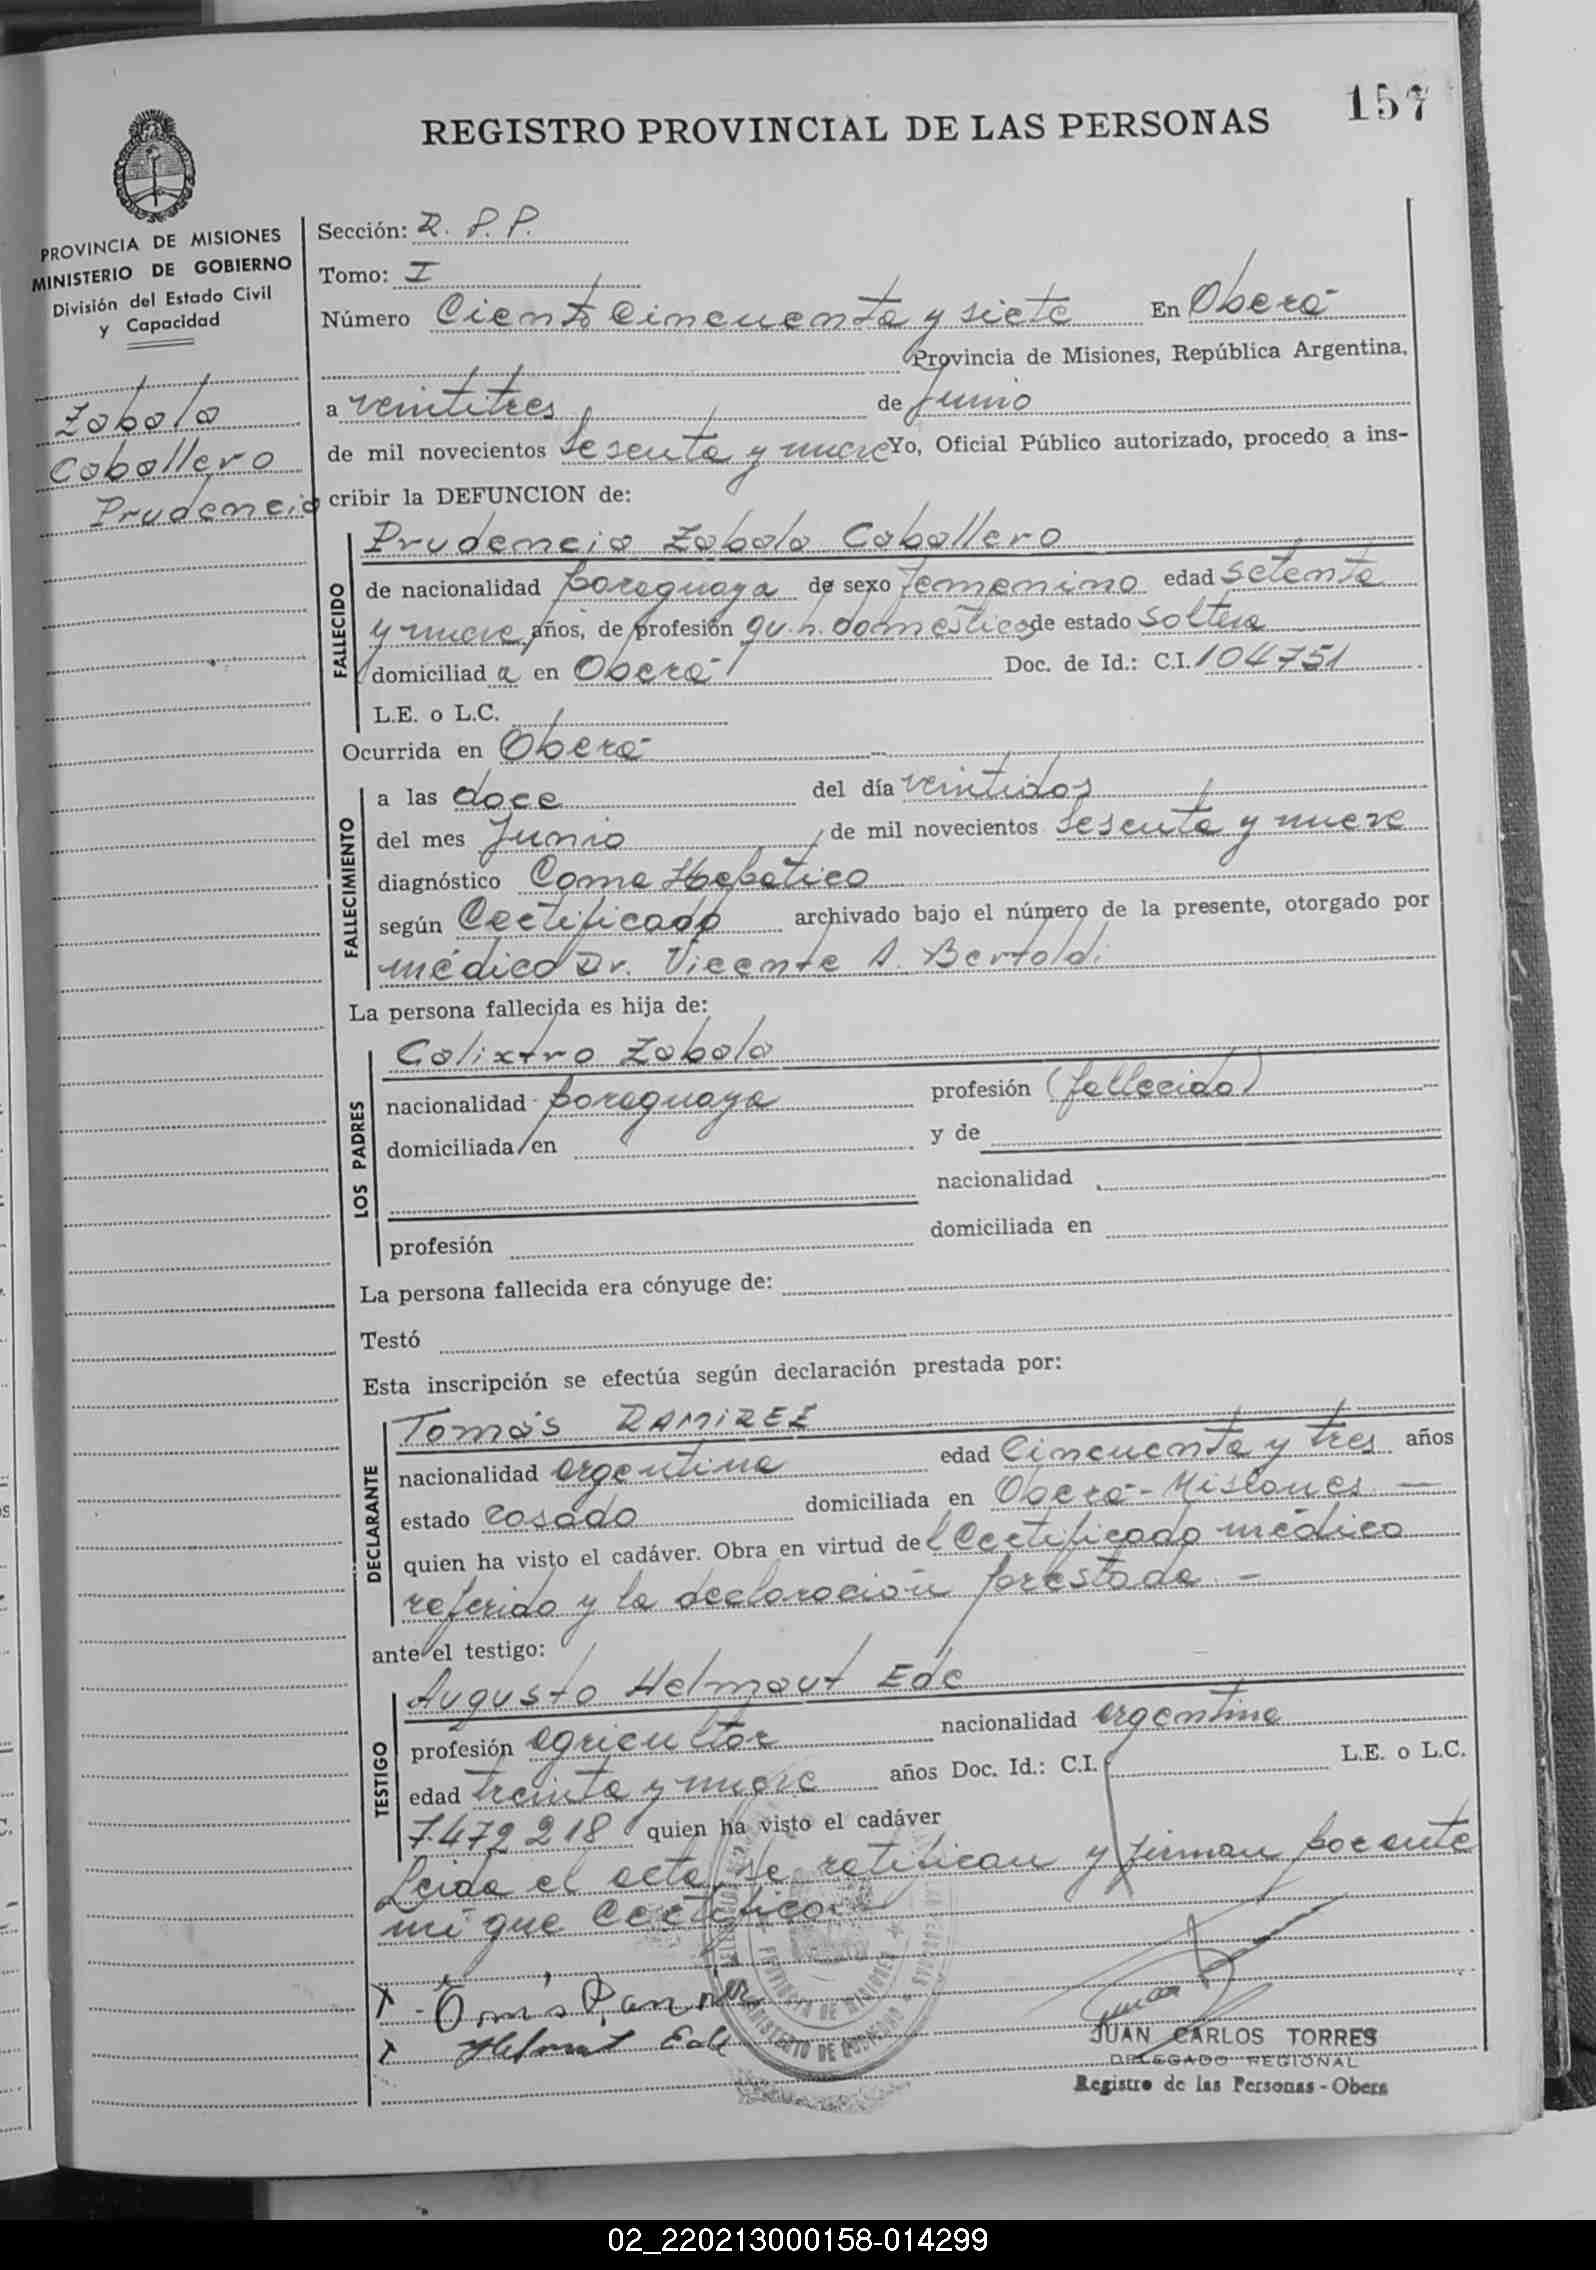 157
REGISTRO PROVINCIAL DE LAS PERSONAS
PROVINCIA DE MISIONES
MINISTERIO DE GOBIERNO
División del Estado Civil
y Capacidad
Zabala
Caballero
Prudencia
Sección: R. P. P.
Tomo: I
Número Ciento Cincuenta y siete En Oberá
Provincia de Misiones, República Argentina,
a veintitres de Junio
de mil novecientos Sesenta y nueve Yo, Oficial Público autorizado, procedo a ins-
cribir la DEFUNCION de:
FALLECIDO
Prudencia Zabala Caballero
de nacionalidad paraguaya de sexo femenino edad setenta
y nueve años, de profesión qu. h. domésticos de estado soltera
domiciliad a en Oberá Doc. de Id.: C.I. 104751
L.E. o L.C.
Ocurrida en Oberá
FALLECIMIENTO
a las doce del día veintidos
del mes Junio de mil novecientos Sesenta y nueve
diagnóstico Coma Hepático
según Certificado archivado bajo el número de la presente, otorgado por
médico Dr. Vicente A. Bertoldi
La persona fallecida es hija de:
LOS PADRES
Calixtro Zabala
nacionalidad paraguaya profesión (fallecida)
domiciliada en y de
nacionalidad
profesión domiciliada en
La persona fallecida era cónyuge de:
Testó
Esta inscripción se efectúa según declaración prestada por:
DECLARANTE
Tomás RAMIREZ
nacionalidad argentina edad Cincuenta y tres años
estado casado domiciliada en Oberá - Misiones -
quien ha visto el cadáver. Obra en virtud del Certificado médico
referido y la declaración prestada -
ante el testigo:
TESTIGO
Augusto Helmaut Ede
profesión agricultor nacionalidad argentina
edad treinta y nueve años Doc. Id.: C.I. L.E. o L.C.
7.472.218 quien ha visto el cadáver
Leida el acta, se ratifican y firman por ante
mi que Certifico
X Tomás Ramirez
X Helmut Ede
JUAN CARLOS TORRES
DELEGADO REGIONAL
Registro de las Personas - Obera
02_220213000158-014299